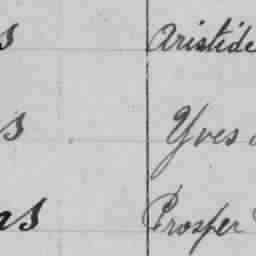 s Aristide
s Yves
as Prosper